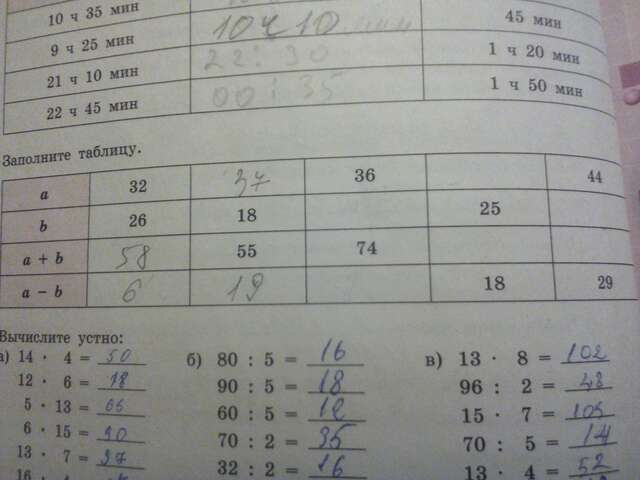 10 ч 35 мин 45 мин
9 ч 25 мин 10 ч 10 мин 1 ч 20 мин
21 ч 10 мин 22 : 30 1 ч 50 мин
22 ч 45 мин 00 : 35
Заполните таблицу.
a 32 37 36 44
b 26 18 25
a + b 58 55 74
a − b 6 19 18 29
Вычислите устно:
а) 14 · 4 = 50 б) 80 : 5 = 16 в) 13 · 8 = 102
12 · 6 = 18 90 : 5 = 18 96 : 2 = 48
5 · 13 = 65 60 : 5 = 12 15 · 7 = 105
6 · 15 = 90 70 : 2 = 35 70 : 5 = 14
13 · 7 = 97 32 : 2 = 16 13 · 4 = 52